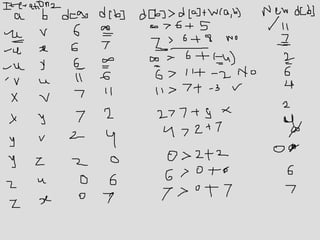 Iteration 2
a b d[a] d[b] d[b] > d[a]+w(a,b) New d[b]
u v 6 ∞ ∞ > 6 + 5 11
u x 6 7 7 > 6 + 8 NO 7
u y 6 ∞ ∞ > 6 + (-4) 2
v u 11 6 6 > 11 + -2 NO 6
x v 7 11 11 > 7 + -3 ✓ 4
x y 7 2 2 > 7 + 9 x 2
y v 2 4 4 > 2 + 7 4
y z 2 0 0 > 2 + 2 0
z u 0 6 6 > 0 + 6
z x 0 7 7 > 0 + 7 7